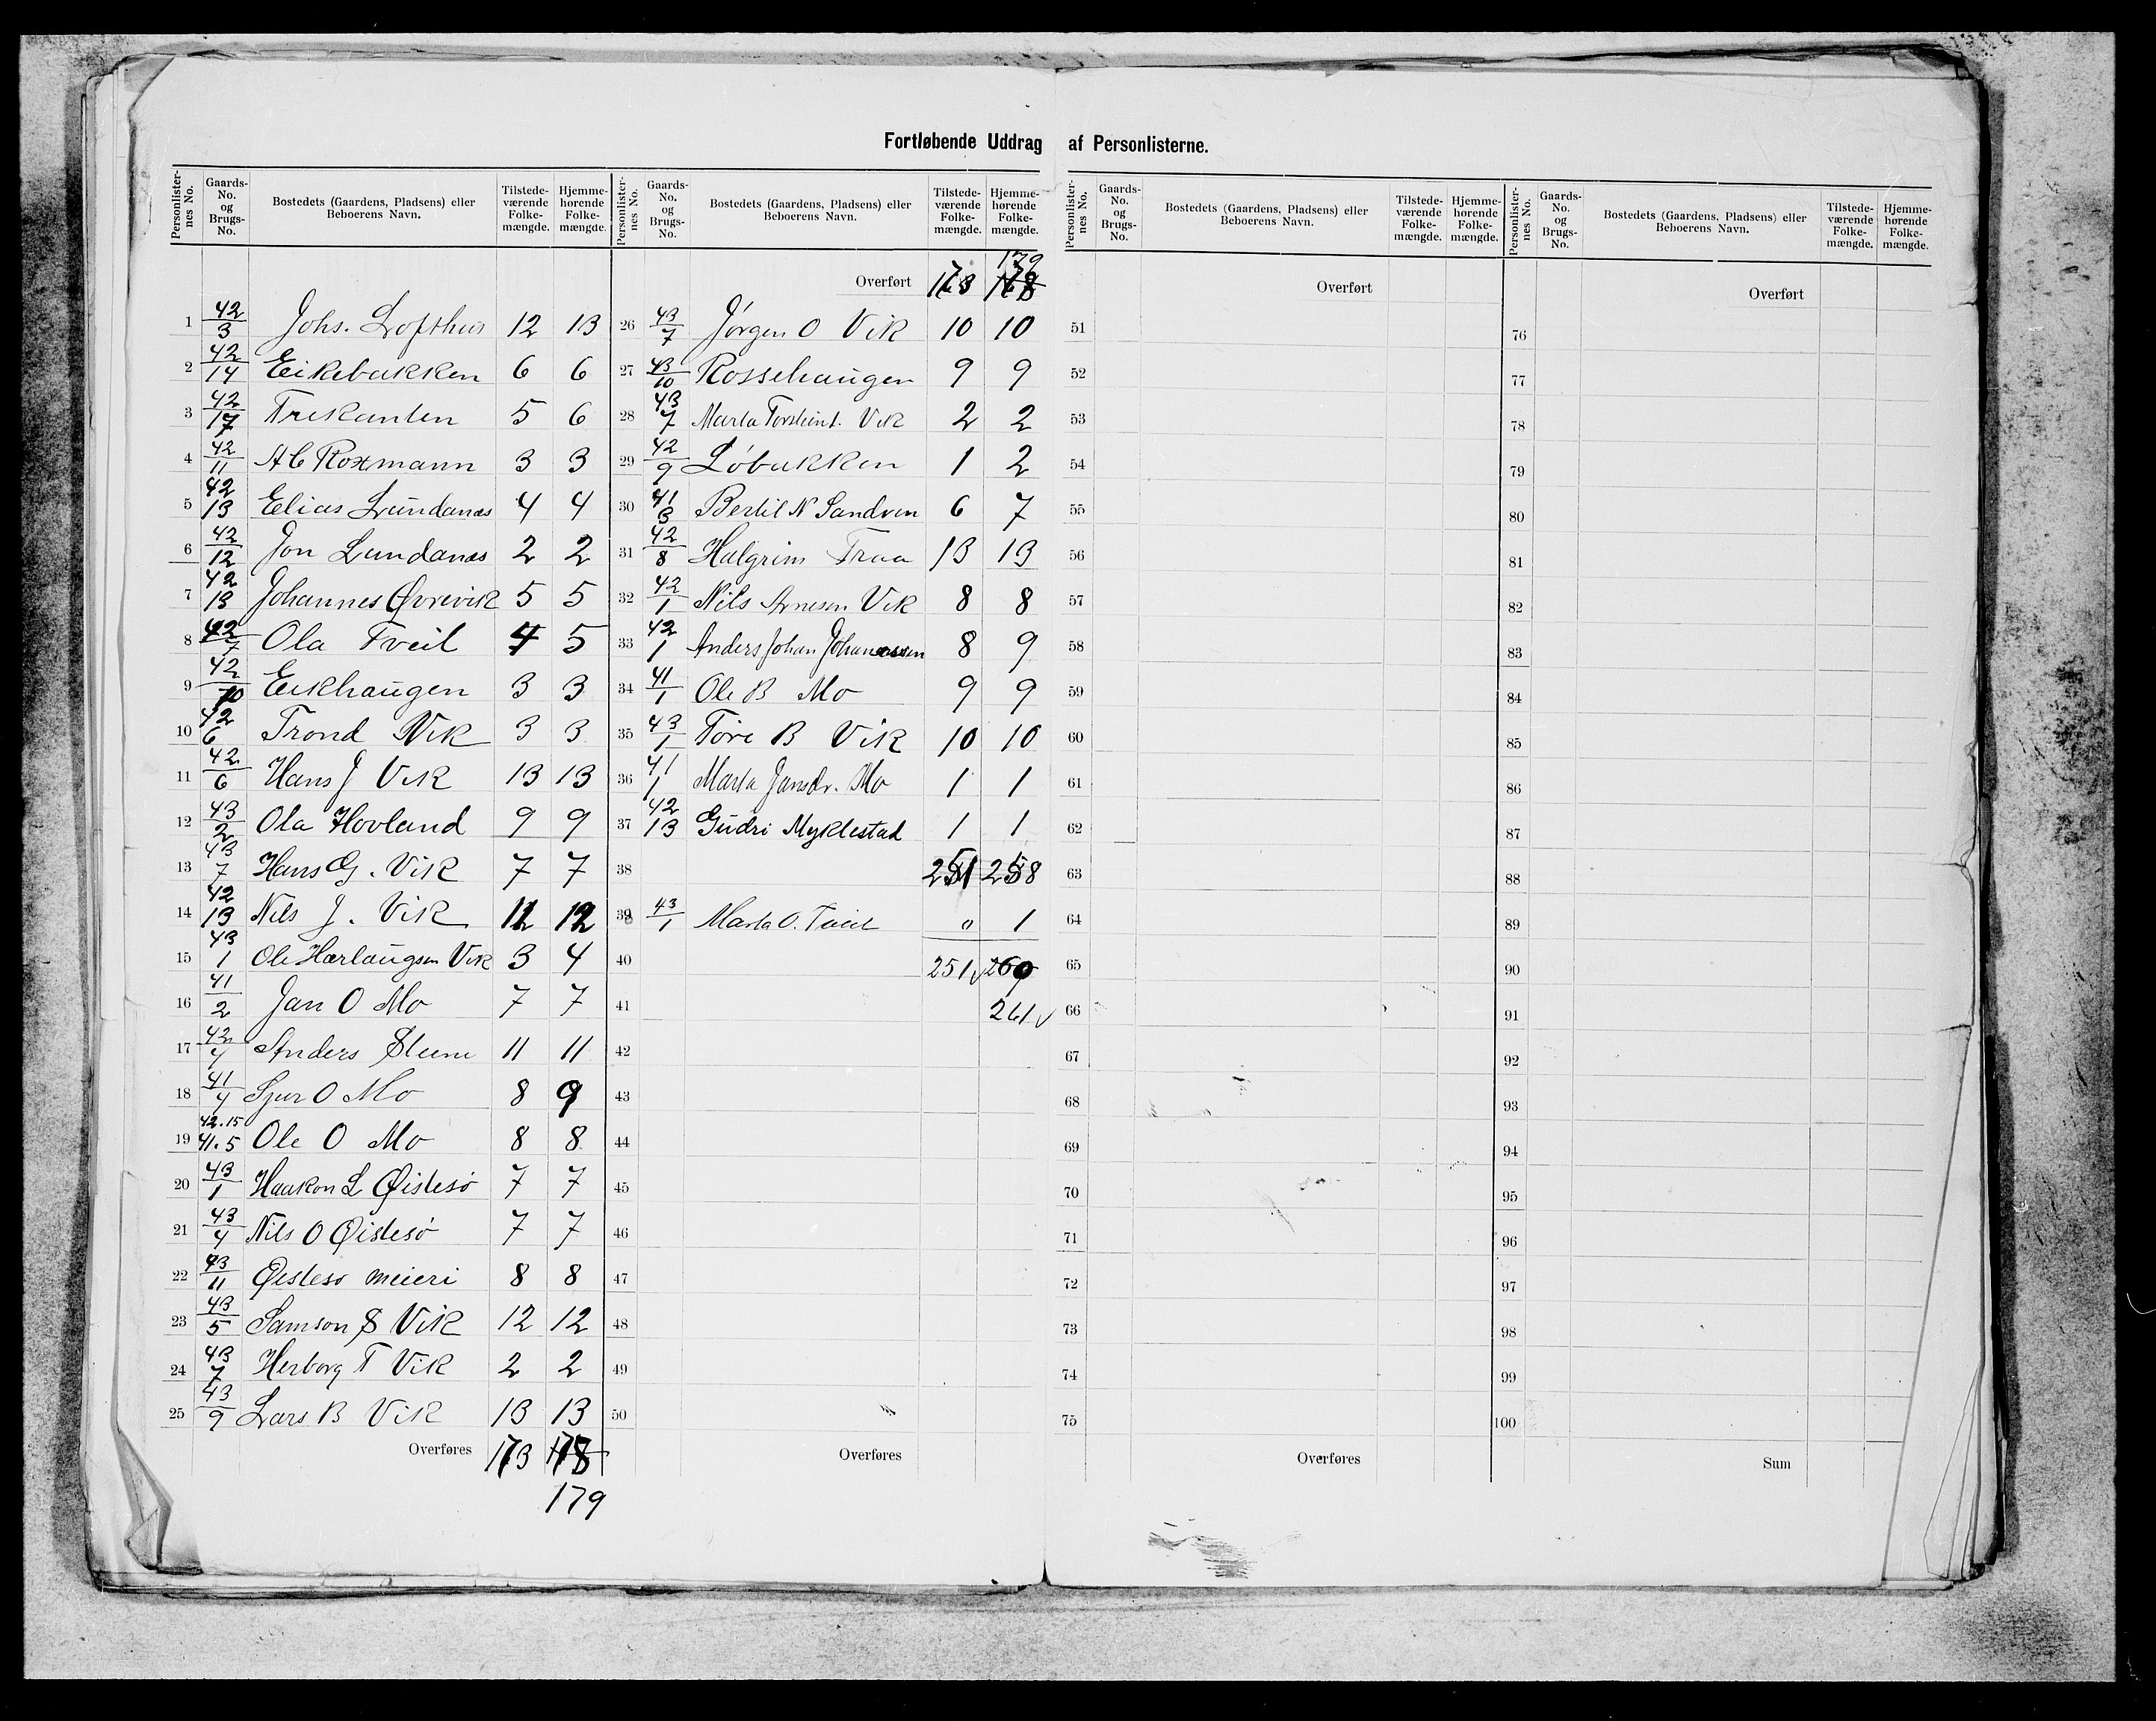 Fortløbende Uddrag af Personlisterne.
Personlisternes No. | Gaards-No. og Brugs-No. | Bostedets (Gaardens, Pladsens) eller Beboerens Navn. | Tilstedeværende Folkemængde. | Hjemmehørende Folkemængde.
1 42/3 Johs. Lofthus 12 13
2 42/14 Eikebakken 6 6
3 42/17 Trekanten 5 6
4 42/11 A C Roxmann 3 3
5 42/13 Elias Lundanæs 4 4
6 42/12 Jon Lundanæs 2 2
7 42/13 Johannes Øvrevik 5 5
8 42/7 Ola Tveit 4 5
9 42/10 Eikhaugen 3 3
10 42/6 Trond Vik 3 3
11 42/6 Hans J Vik 13 13
12 43/2 Ola Hovland 9 9
13 43/7 Hans G. Vik 7 7
14 42/13 Nils J. Vik 11 12
15 43/1 Ole Herlaugsen Vik 3 4
16 41/2 Jan O Mo 7 7
17 42/4 Anders Steine 11 11
18 41/4 Sjur O Mo 8 9
19 42.15 41.5 Ole O Mo 8 8
20 43/1 Haakon L Øistesø 7 7
21 43/4 Nils O Øistesø 7 7
22 43/11 Øistesø meieri 8 8
23 43/5 Samson S Vik 12 12
24 43/7 Herborg T Vik 2 2
25 43/9 Lars B Vik 13 13
Overføres 173 178
179
Personlisternes No. | Gaards-No. og Brugs-No. | Bostedets (Gaardens, Pladsens) eller Beboerens Navn. | Tilstedeværende Folkemængde. | Hjemmehørende Folkemængde.
179
Overført 173 178
26 43/7 Jørgen O Vik 10 10
27 43/10 Rossehaugen 9 9
28 43/7 Marta Torsteinst. Vik 2 2
29 42/9 Løbakken 1 2
30 41/3 Bertil N Sandven 6 7
31 42/8 Halgrim Traa 13 13
32 42/1 Nils Arnesen Vik 8 8
33 42/1 Anders Johan Johannessen 8 9
34 41/1 Ole B Mo 9 9
35 43/1 Tore B Vik 10 10
36 41/1 Marta Jansdr. Mo 1 1
37 42/13 Gudri Myklestad 1 1
38 251 258
39 43/1 Marta O. Tveit " 1
40 251 260
41 261
42
43
44
45
46
47
48
49
50
Overføres
Personlisternes No. | Gaards-No. og Brugs-No. | Bostedets (Gaardens, Pladsens) eller Beboerens Navn. | Tilstedeværende Folkemængde. | Hjemmehørende Folkemængde.
Overført
51
52
53
54
55
56
57
58
59
60
61
62
63
64
65
66
67
68
69
70
71
72
73
74
75
Overføres
Personlisternes No. | Gaards-No. og Brugs-No. | Bostedets (Gaardens, Pladsens) eller Beboerens Navn. | Tilstedeværende Folkemængde. | Hjemmehørende Folkemængde.
Overført
76
77
78
79
80
81
82
83
84
85
86
87
88
89
90
91
92
93
94
95
96
97
98
99
100
Sum